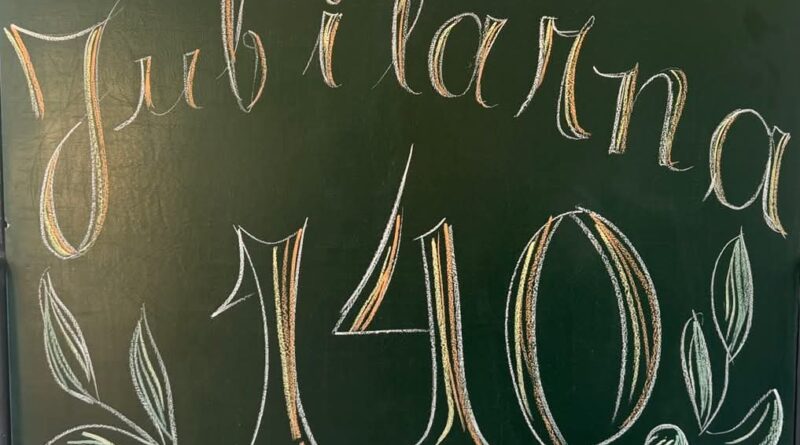 Jubilarna
140